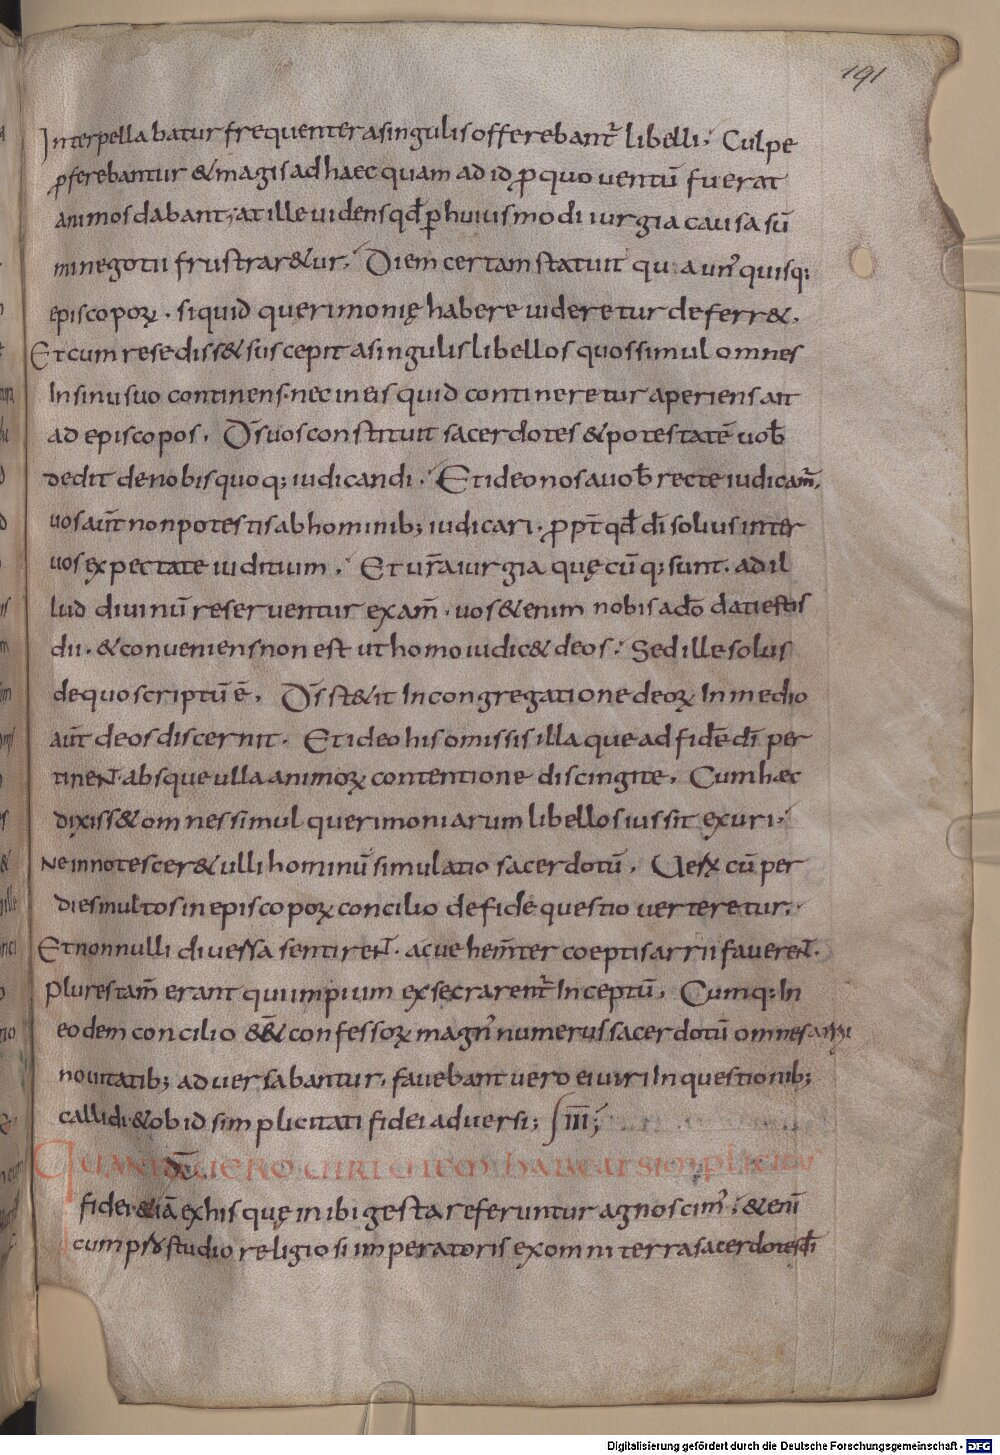 191
Interpellabatur frequenter a singulis offerebant̄ libelli. Culpe
ꝓferebantur & magis ad haec quam ad id ꝓ quo ventū fuerat
animos dabant; at ille uidens qđ ꝑ huiusmodi iurgia causa sū
mi negotii frustrar&ur. Diem certam statuit qua un' quisq;
episcoporꝝ. siquid querimonię habere uideretur deferr&.
Et cum resediss& suscepit a singulis libellos quos simul omnes
In sinu suo continens. nec in eis quid contineretur aperiens ait
ad episcopos. Ds̄ uos constituit sacerdotes & potestatē uob̄
dedit de nobis quoq; iudicandi. Et ideo nos a uob̄ recte iudicam̄.
uos aut̄ non potestis ab hominib; iudicari. ꝓpt̄ qđ dī solius inter
uos expectate iuditium. Et ur̄a iurgia quęcūq; sunt. ad il
lud diuinū reseruentur exam̄. uos & enim nobis a dō dati estis
dii. & conueniens non est ut homo iudic& deos. Sed ille solus
de quo scriptū ē. Ds̄ st&it In congregatione deorꝝ In medio
aut̄ deos discernit. Et ideo his omissis illa que ad fidē dī per
tineNT. absque ulla animorꝝ contentione discingite. Cum hæc
dixiss& omnes simul querimoniarum libellos iussit exuri.
Ne innotescer& ulli hominū simulatio sacerdotū. Uerꝝ cū per
dies multos in episcoporꝝ concilio de fide questio uerteretur.
Et nonnulli diuessa sentireNT. ac uehem̄ter coeptis arrii fauereNT.
Plures tam̄ erant qui impium exsecrarent̄ Inceptū. Cumq; In
eodem concilio ēē& confessorꝝ magn' numerus sacerdotū omnes arrii
nouitatib; aduersabantur. fauebant uero ei uiri In questionib;
callidi. & ob id simplicitati fidei aduersi; III;
QUANTA UERO UIRTUTEM HABEAT SIMPLICITAS
dī
fidei. & iā ex his quę in ibi gesta referuntur agnoscim'. & enī
cum pro studio religiosi imperatoris ex omni terra sacerdotes dī
Digitalisierung gefördert durch die Deutsche Forschungsgemeinschaft - DFG